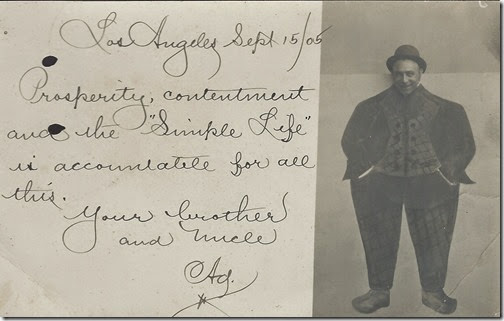 Los Angeles Sept 15/05
Prosperity, contentment
and the "Simple Life"
is accountable for all
this.
Your brother
and Uncle
Ad.